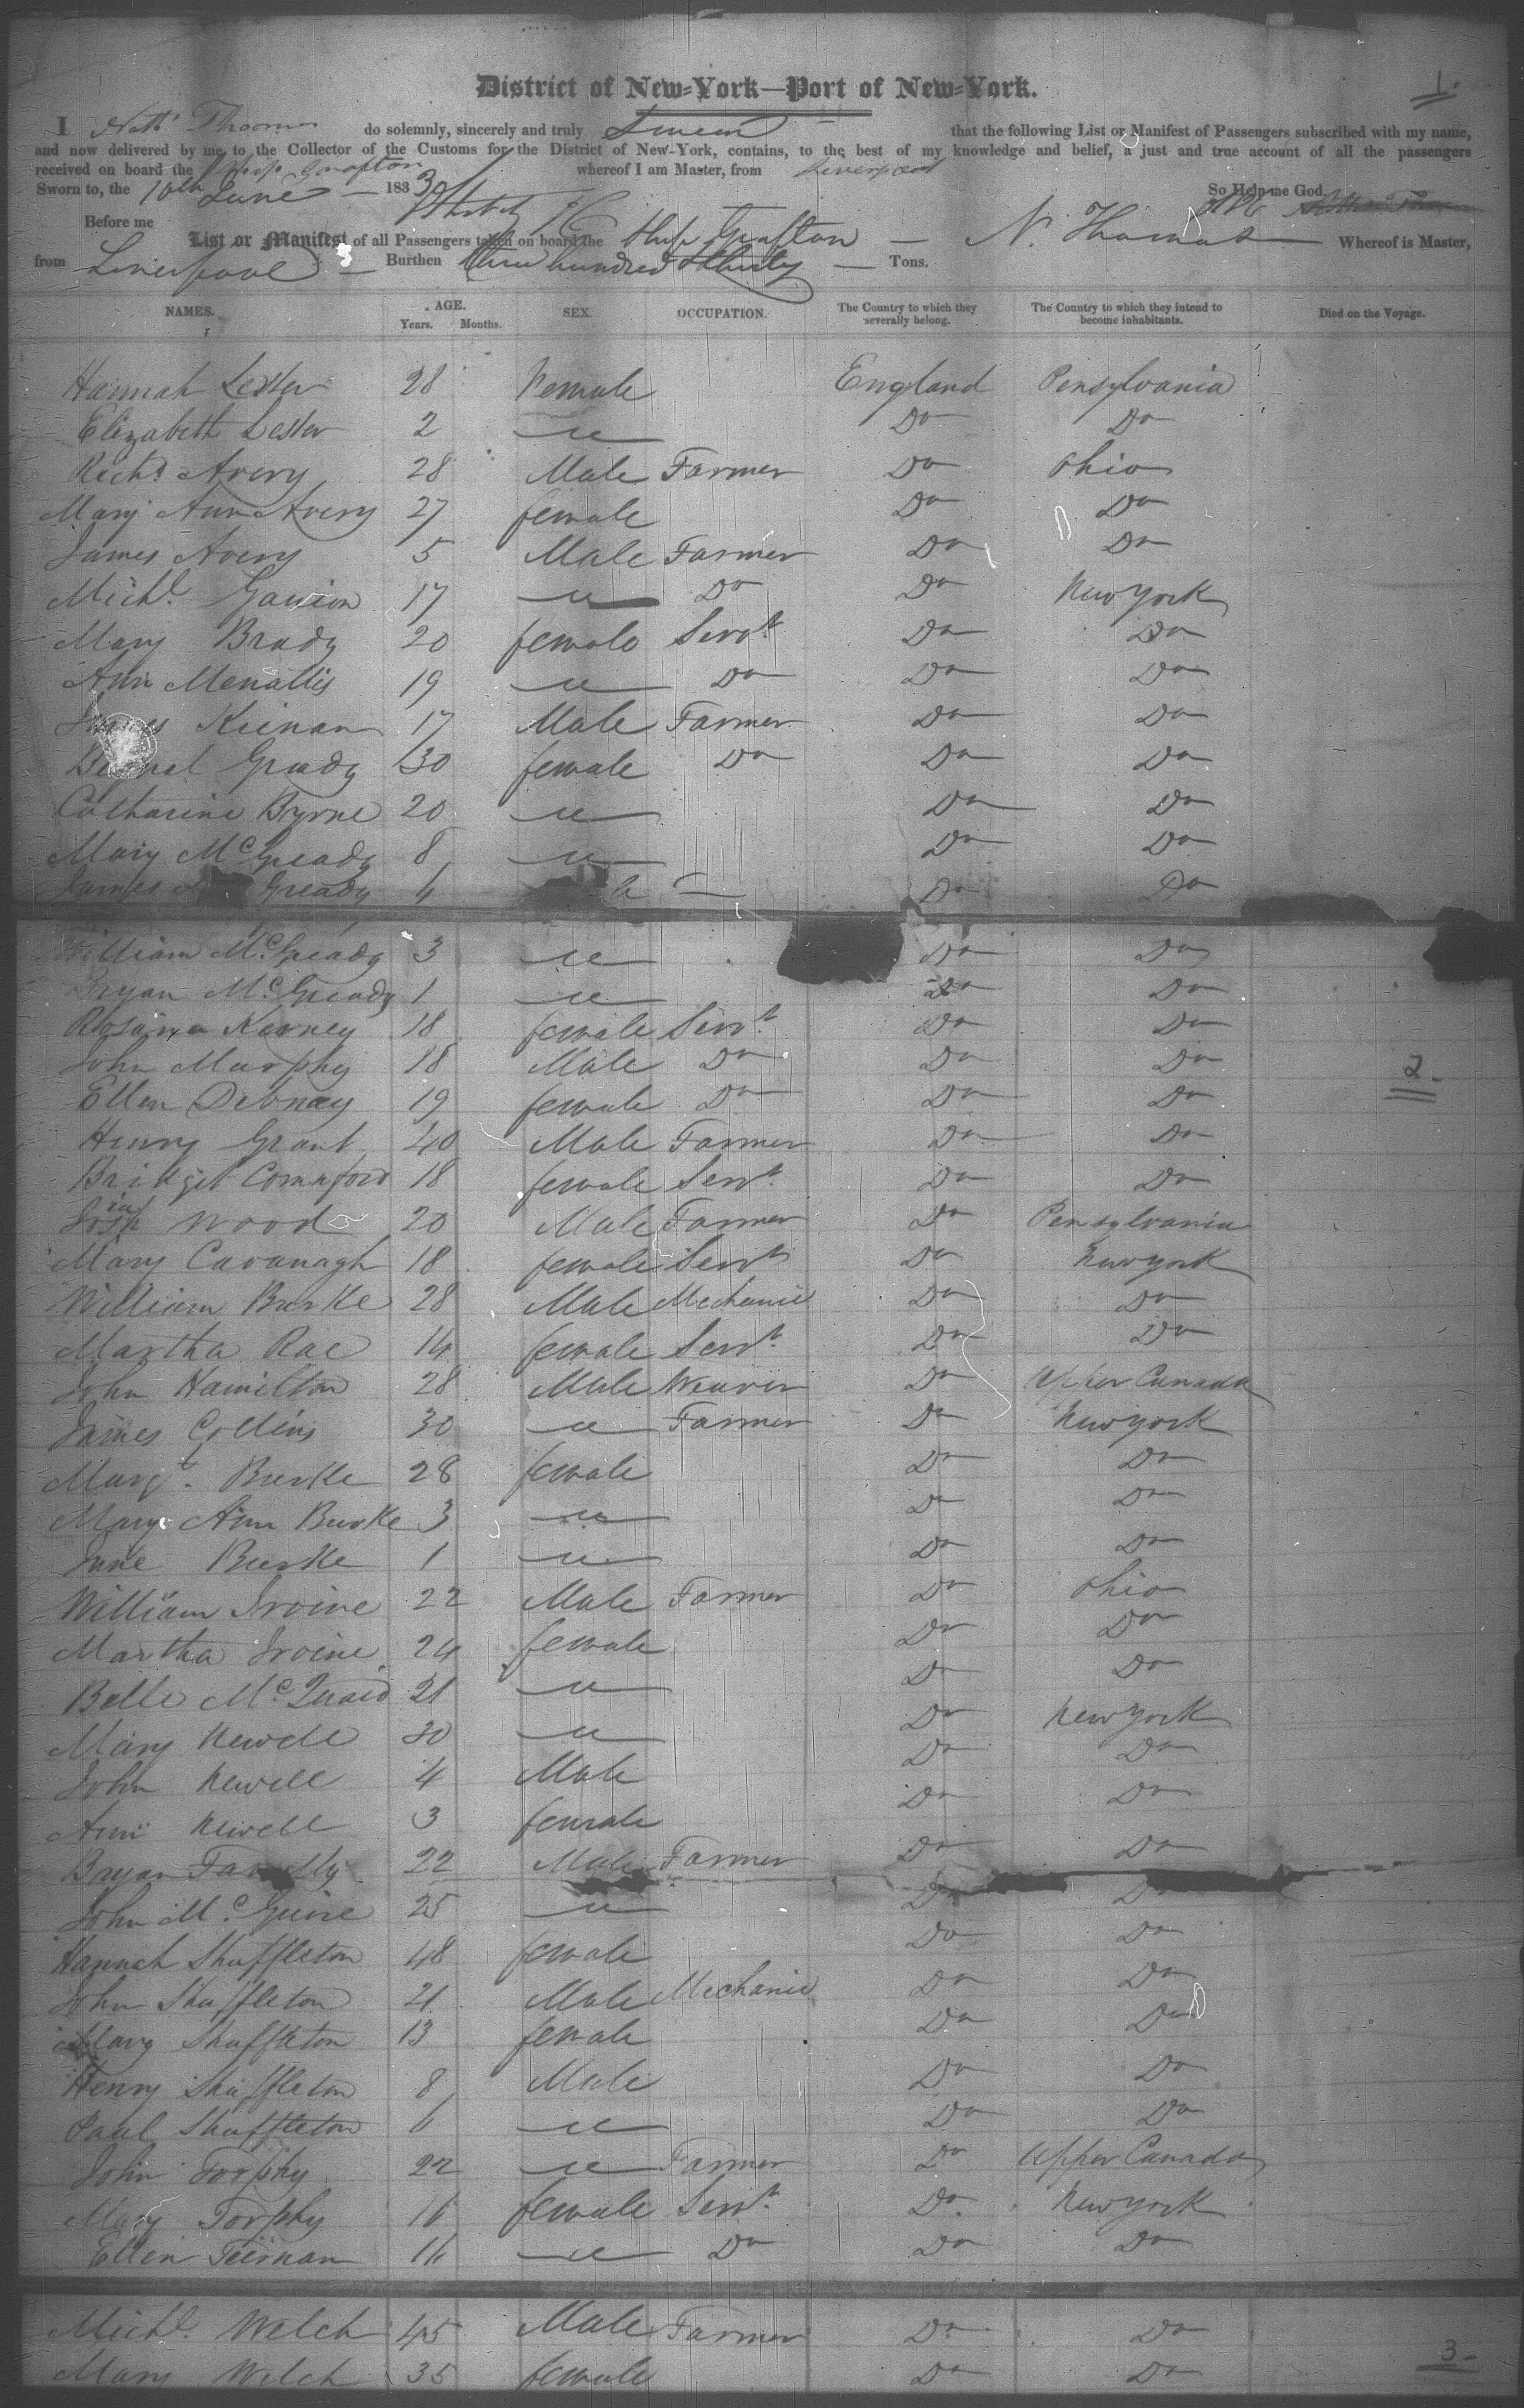 1.
District of New-York—Port of New-York.
I Nath Thomas do solemnly, sincerely and truly Swear that the following List or Manifest of Passengers subscribed with my name,
and now delivered by me to the Collector of the Customs for the District of New-York, contains, to the best of my knowledge and belief, a just and true account of all the passengers
received on board the Ship Grafton whereof I am Master, from Liverpool
Sworn to, the 10th June 1833 So Help me God.
Before me
List or Manifest of all Passengers taken on board the Ship Grafton N. Thomas Whereof is Master,
from Liverpool Burthen three hundred & thirty Tons.
NAMES. AGE. Years. Months. SEX. OCCUPATION. The Country to which they severally belong. The Country to which they intend to become inhabitants. Died on the Voyage.
Hannah Lester 28 Female England Pensylvania
Elizabeth Lester 2 " Do Do
Richd Avery 28 Male Farmer Do Ohio
Mary Ann Avery 27 female Do Do
James Avery 5 Male Farmer Do Do
Michl. 17 " Do Do New York
Mary Brady 20 female Servt Do Do
Ann 19 " Do Do Do
James Keenan 17 Male Farmer Do Do
Grady 30 female Do Do Do
Catharine Byrne 20 " Do Do
Mary McGready 8 " Do Do
James Gready 4 Do Do
William McGready 3 " Do Do
Bryan McGready 1 " Do Do
Rosanna Kearney 18 female Servt Do Do
John Murphy 18 Male Do Do Do
2.
Ellen 19 female Do Do Do
Henry Grant 40 Male Farmer Do Do
Bridget Comaford 18 female Servt Do Do
Wood 20 Male Farmer Do Pensylvania
Mary Cavanagh 18 female Servt Do New york
William Burke 28 Male Mechanic Do Do
Martha Rae 14 female Servt Do Do
John Hamilton 28 Male Weaver Do Upper Canada
James Collins 30 " Farmer Do New york
Margt. Burke 28 female Do Do
Mary Ann Burke 3 " Do Do
Jane Burke 1 " Do Do
William Irvine 22 Male Farmer Do Ohio
Martha Irvine 24 female Do Do
Belle McQuaid 21 " Do Do
Mary Newell 30 " Do New york
John Newell 4 Male Do Do
Ann Newell 3 female Do Do
Bryan Farrelly 22 Male Farmer Do Do
John McGuire 25 " Do Do
Hannah Shuffleton 48 female Do Do
John Shuffleton 21 Male Mechanic Do Do
Mary Shuffleton 13 female Do Do
Henry Shuffleton 8 Male Do Do
Paul Shuffleton 6 " Do Do
John Torphy 22 " Farmer Do Upper Canada
Mary Torphy 16 female Servt Do New york
Ellen Teirnan 16 " Do Do Do
Michl. Welch 45 Male Farmer Do Do
Mary Welch 35 female Do Do
3.